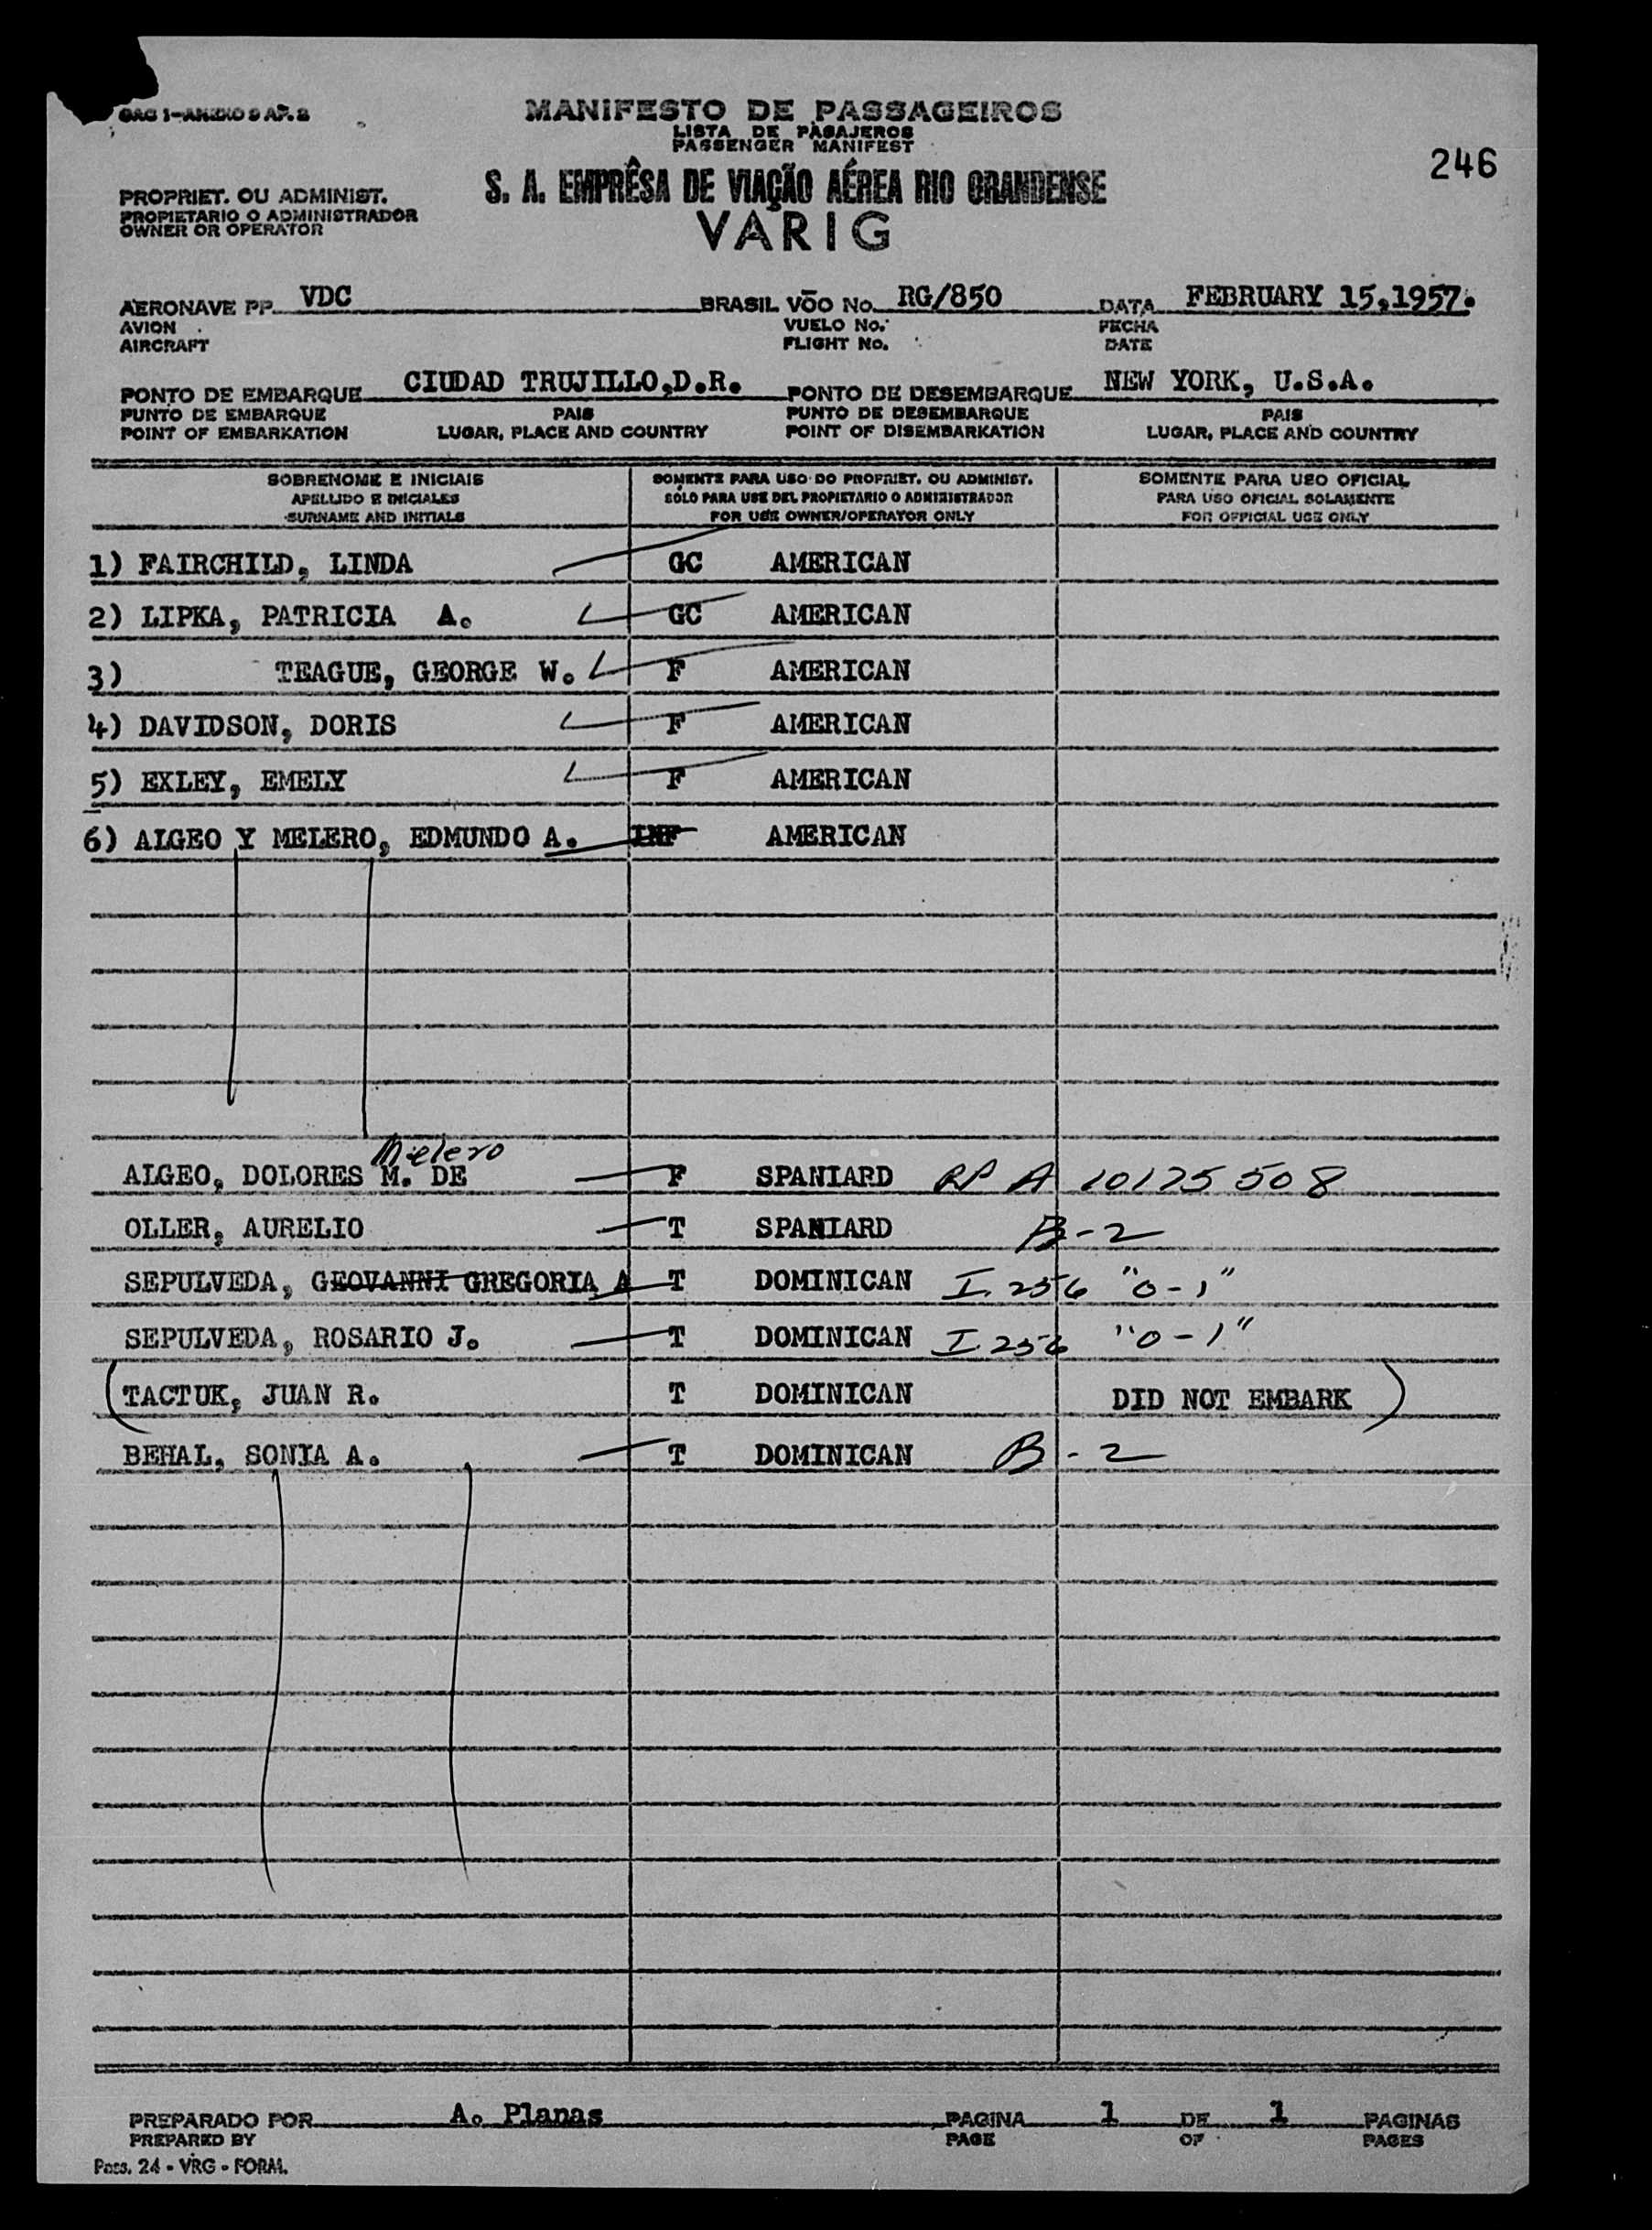 OAC 1-ANEXO 9 AP. 2
MANIFESTO DE PASSAGEIROS
LISTA DE PASAJEROS
PASSENGER MANIFEST
246
S. A. EMPRÊSA DE VIAÇÃO AÉREA RIO GRANDENSE
VARIG
PROPRIET. OU ADMINIST.
PROPIETARIO O ADMINISTRADOR
OWNER OR OPERATOR
AERONAVE PP VDC BRASIL VÕO No. RG/850 DATA FEBRUARY 15,1957.
AVION VUELO No. FECHA
AIRCRAFT FLIGHT No. DATE
PONTO DE EMBARQUE CIUDAD TRUJILLO,D.R. PONTO DE DESEMBARQUE NEW YORK, U.S.A.
PUNTO DE EMBARQUE PAIS PUNTO DE DESEMBARQUE PAIS
POINT OF EMBARKATION LUGAR, PLACE AND COUNTRY POINT OF DISEMBARKATION LUGAR, PLACE AND COUNTRY
SOBRENOME E INICIAIS SOMENTE PARA USO DO PROPRIET. OU ADMINIST. SOMENTE PARA USO OFICIAL
APELLIDO E INICIALES SÓLO PARA USE DEL PROPIETARIO O ADMINISTRADOR PARA USO OFICIAL SOLAMENTE
SURNAME AND INITIALS FOR USE OWNER/OPERATOR ONLY FOR OFFICIAL USE ONLY
1) FAIRCHILD, LINDA GC AMERICAN
2) LIPKA, PATRICIA A. GC AMERICAN
3) TEAGUE, GEORGE W. F AMERICAN
4) DAVIDSON, DORIS F AMERICAN
5) EXLEY, EMELY F AMERICAN
6) ALGEO Y MELERO, EDMUNDO A. INF AMERICAN
Melero
ALGEO, DOLORES M. DE F SPANIARD RP A 10125508
OLLER, AURELIO T SPANIARD B-2
SEPULVEDA, GEOVANNI GREGORIA A T DOMINICAN I.256 "0-1"
SEPULVEDA, ROSARIO J. T DOMINICAN I 256 "0-1"
(TACTUK, JUAN R. T DOMINICAN DID NOT EMBARK)
BEHAL, SONIA A. T DOMINICAN B-2
PREPARADO POR A. Planas PAGINA 1 DE 1 PAGINAS
PREPARED BY PAGE OF PAGES
Pass. 24 - VRG - FORM.